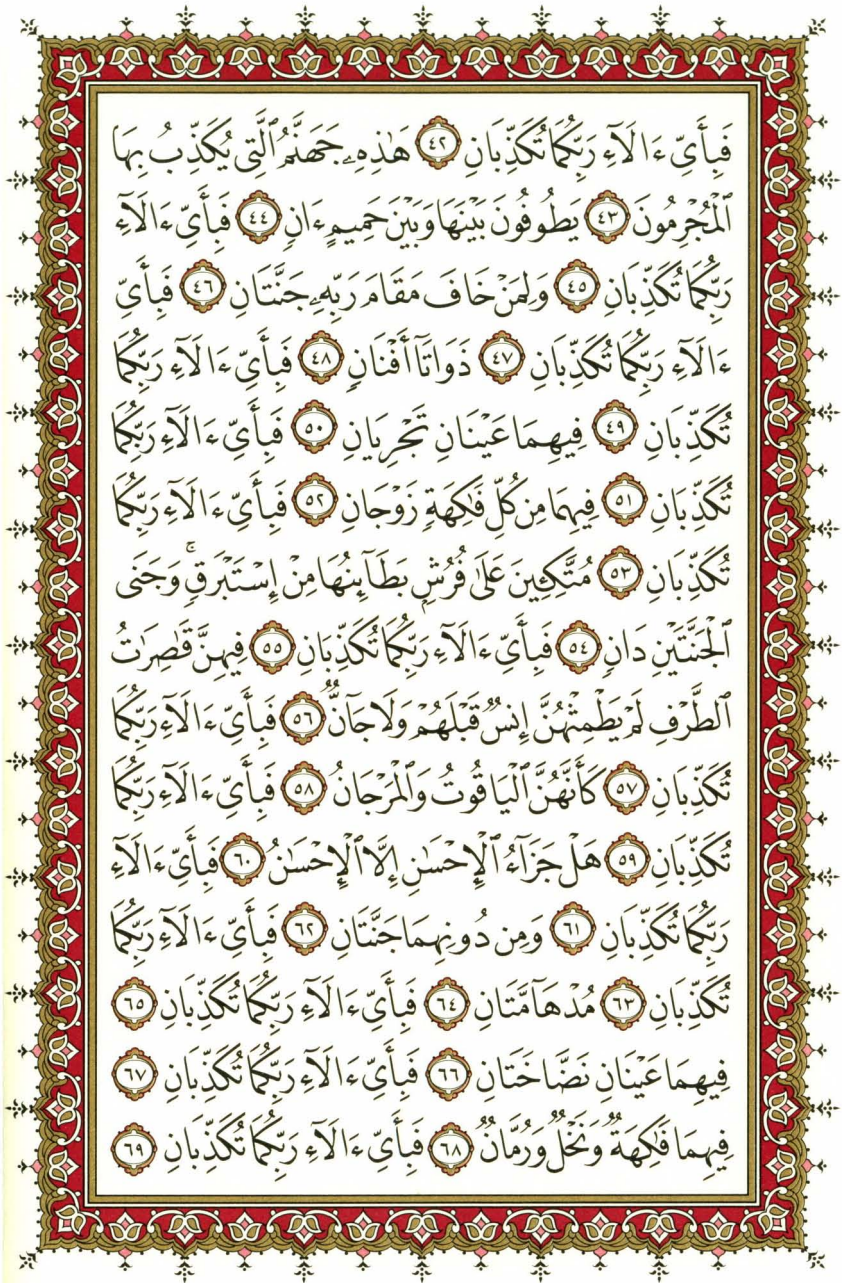 فَبِأَىِّ ءَالَآءِ رَبِّكُمَا تُكَذِّبَانِ ٤٢ هَٰذِهِۦ جَهَنَّمُ ٱلَّتِى يُكَذِّبُ بِهَا
ٱلْمُجْرِمُونَ ٤٣ يَطُوفُونَ بَيْنَهَا وَبَيْنَ حَمِيمٍ ءَانٍ ٤٤ فَبِأَىِّ ءَالَآءِ
رَبِّكُمَا تُكَذِّبَانِ ٤٥ وَلِمَنْ خَافَ مَقَامَ رَبِّهِۦ جَنَّتَانِ ٤٦ فَبِأَىِّ
ءَالَآءِ رَبِّكُمَا تُكَذِّبَانِ ٤٧ ذَوَاتَآ أَفْنَانٍ ٤٨ فَبِأَىِّ ءَالَآءِ رَبِّكُمَا
تُكَذِّبَانِ ٤٩ فِيهِمَا عَيْنَانِ تَجْرِيَانِ ٥٠ فَبِأَىِّ ءَالَآءِ رَبِّكُمَا
تُكَذِّبَانِ ٥١ فِيهِمَا مِن كُلِّ فَٰكِهَةٍ زَوْجَانِ ٥٢ فَبِأَىِّ ءَالَآءِ رَبِّكُمَا
تُكَذِّبَانِ ٥٣ مُتَّكِـِٔينَ عَلَىٰ فُرُشٍۭ بَطَآئِنُهَا مِنْ إِسْتَبْرَقٍ ۚ وَجَنَى
ٱلْجَنَّتَيْنِ دَانٍ ٥٤ فَبِأَىِّ ءَالَآءِ رَبِّكُمَا تُكَذِّبَانِ ٥٥ فِيهِنَّ قَٰصِرَٰتُ
ٱلطَّرْفِ لَمْ يَطْمِثْهُنَّ إِنسٌ قَبْلَهُمْ وَلَا جَآنٌّ ٥٦ فَبِأَىِّ ءَالَآءِ رَبِّكُمَا
تُكَذِّبَانِ ٥٧ كَأَنَّهُنَّ ٱلْيَاقُوتُ وَٱلْمَرْجَانُ ٥٨ فَبِأَىِّ ءَالَآءِ رَبِّكُمَا
تُكَذِّبَانِ ٥٩ هَلْ جَزَآءُ ٱلْإِحْسَٰنِ إِلَّا ٱلْإِحْسَٰنُ ٦٠ فَبِأَىِّ ءَالَآءِ
رَبِّكُمَا تُكَذِّبَانِ ٦١ وَمِن دُونِهِمَا جَنَّتَانِ ٦٢ فَبِأَىِّ ءَالَآءِ رَبِّكُمَا
تُكَذِّبَانِ ٦٣ مُدْهَآمَّتَانِ ٦٤ فَبِأَىِّ ءَالَآءِ رَبِّكُمَا تُكَذِّبَانِ ٦٥
فِيهِمَا عَيْنَانِ نَضَّاخَتَانِ ٦٦ فَبِأَىِّ ءَالَآءِ رَبِّكُمَا تُكَذِّبَانِ ٦٧
فِيهِمَا فَٰكِهَةٌ وَنَخْلٌ وَرُمَّانٌ ٦٨ فَبِأَىِّ ءَالَآءِ رَبِّكُمَا تُكَذِّبَانِ ٦٩